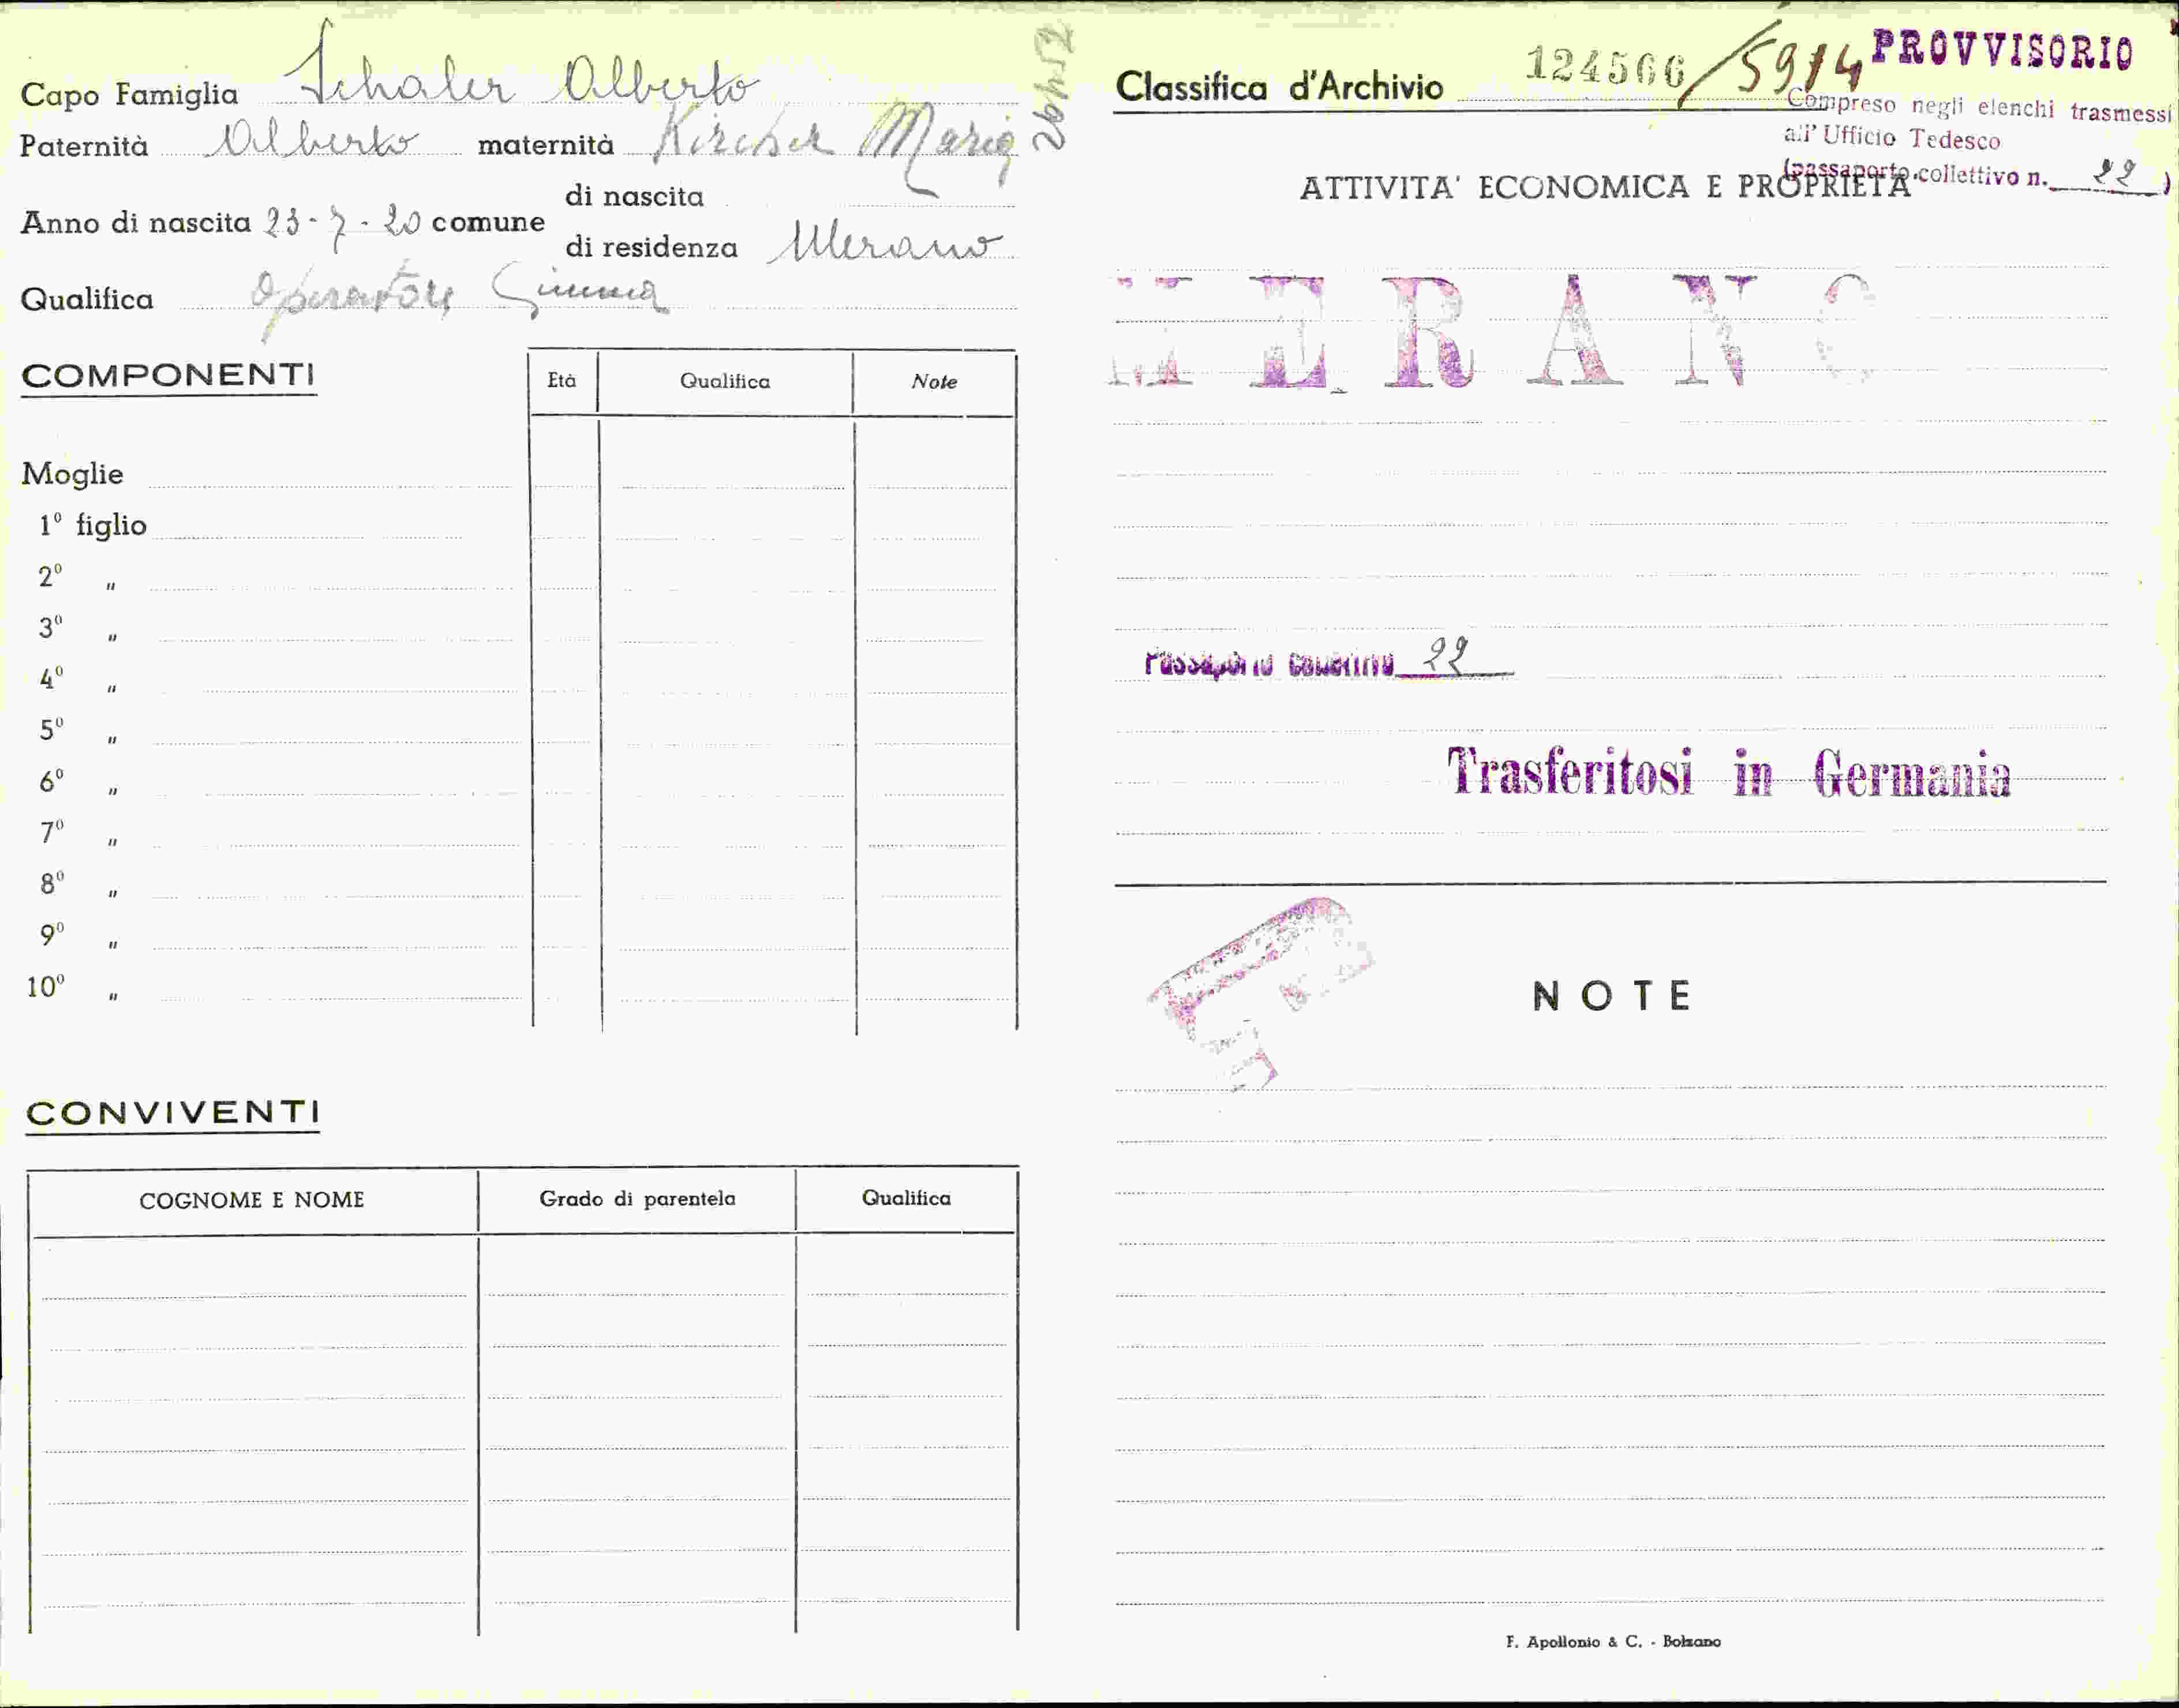 Capo Famiglia Schaler Alberto
Paternità Alberto maternità Kircher Maria
Anno di nascita 23-7-20 comune di nascita
di residenza Merano
Qualifica Operatore
COMPONENTI Età Qualifica Note
Moglie
1° figlio
2° "
3° "
4° "
5° "
6° "
7° "
8° "
9° "
10° "
CONVIVENTI
COGNOME E NOME Grado di parentela Qualifica
Classifica d'Archivio 124566/5914 PROVVISORIO
Compreso negli elenchi trasmessi
all' Ufficio Tedesco
(passaporto collettivo n. 22)
ATTIVITA' ECONOMICA E PROPRIETA'
MERANO
Passaporto Collettivo 22
Trasferitosi in Germania
NOTE
F. Apollonio & C. - Bolzano